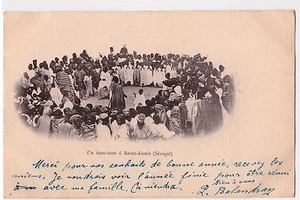 Un tam-tam à Saint-Louis (Sénégal)
Merci pour vos souhaits de bonne année, recevez les
miens. Je voudrais voir l'année finie pour être réuni
avec ma famille. Ça viendra.